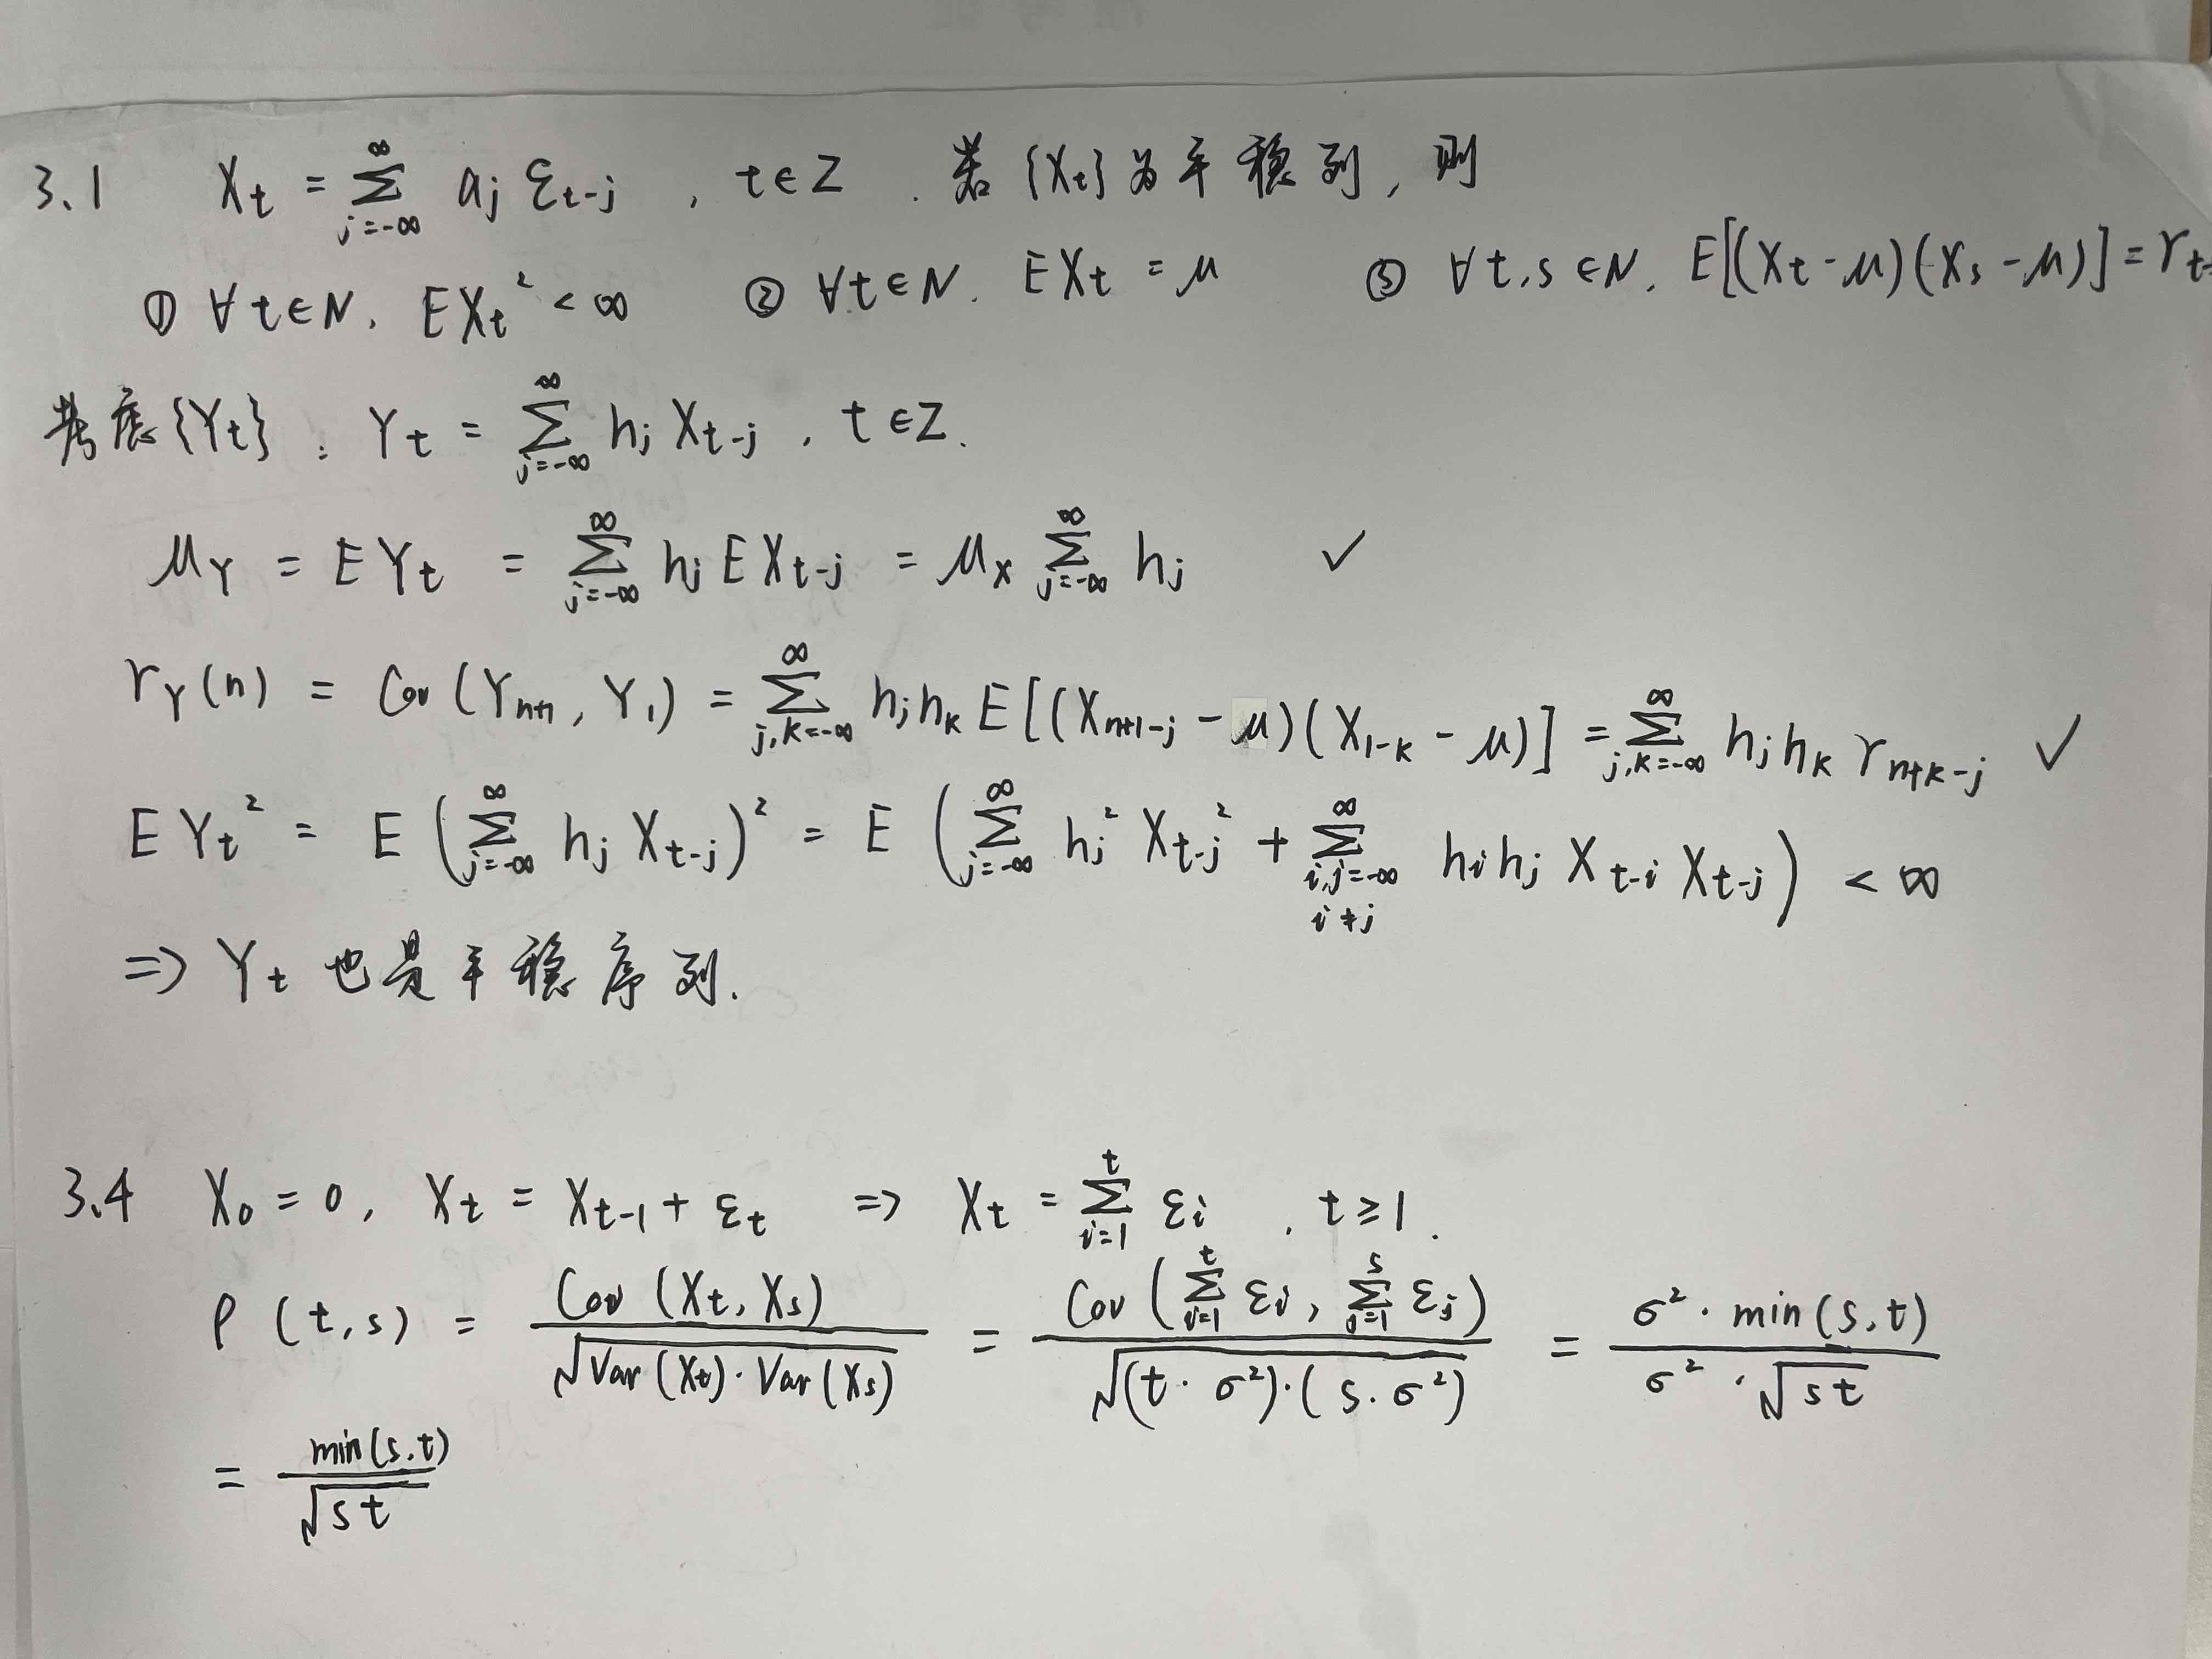 3.1 Xt = ∑_{j=-∞}^{∞} aj εt-j , t∈Z . 若{Xt}为平稳列, 则
① ∀t∈N, EXt² < ∞ ② ∀t∈N. EXt = μ ③ ∀t,s∈N, E[(Xt-μ)(Xs-μ)] = γt-
考虑{Yt}: Yt = ∑_{j=-∞}^{∞} hj Xt-j , t∈Z.
μY = EYt = ∑_{j=-∞}^{∞} hj E Xt-j = μX ∑_{j=-∞}^{∞} hj ✓
γY(n) = Cov(Yn+1, Y1) = ∑_{j,k=-∞}^{∞} hj hk E[(Xn+1-j - μ)(X1-k - μ)] = ∑_{j,k=-∞}^{∞} hj hk γn+k-j ✓
EYt² = E(∑_{j=-∞}^{∞} hj Xt-j)² = E(∑_{j=-∞}^{∞} hj² Xt-j² + ∑_{i,j=-∞, i≠j}^{∞} hi hj Xt-i Xt-j) < ∞
⇒ Yt 也是平稳序列.
3.4 X0 = 0, Xt = Xt-1 + εt ⇒ Xt = ∑_{i=1}^{t} εi , t≥1.
ρ(t,s) = Cov(Xt, Xs) / √(Var(Xt)·Var(Xs)) = Cov(∑_{i=1}^{t} εi, ∑_{j=1}^{s} εj) / √((t·σ²)·(s·σ²)) = σ²·min(s,t) / σ²·√st
= min(s,t) / √st